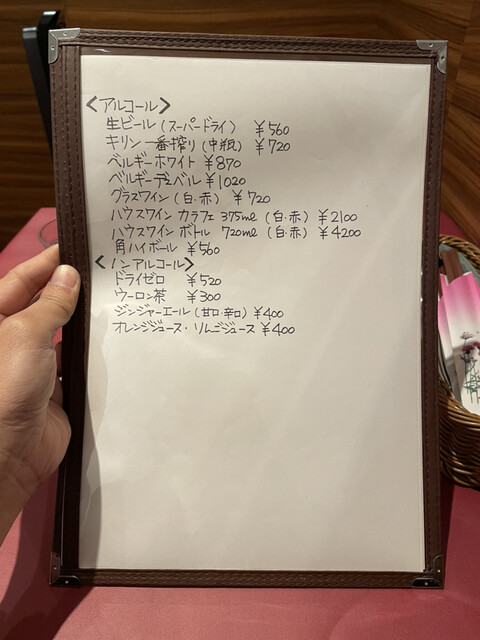 <アルコール>
生ビール(スーパードライ) ¥560
キリン一番搾り(中瓶) ¥720
ベルギーホワイト ¥870
ベルギーデュベル ¥1020
グラスワイン(白・赤) ¥720
ハウスワイン カラフェ 375ml (白・赤) ¥2100
ハウスワイン ボトル 720ml (白・赤) ¥4200
角ハイボール ¥560
<ノンアルコール>
ドライゼロ ¥520
ウーロン茶 ¥300
ジンジャーエール(甘口・辛口) ¥400
オレンジジュース・リんごジュース ¥400